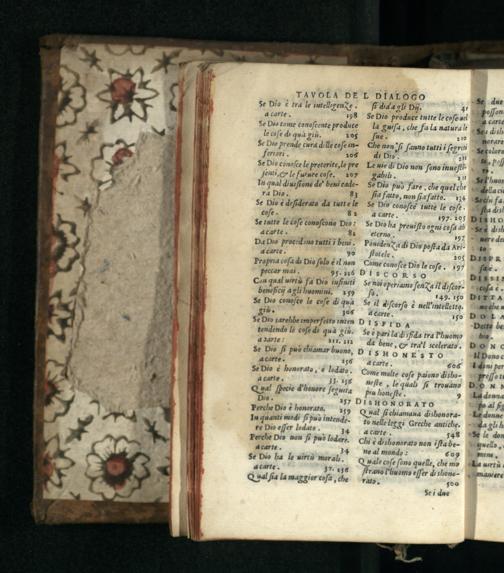 TAVOLA DE L DIALOGO
Se Dio è tra le intelligenze.
a carte. 198
Se Dio come conoscente produce
le cose di quà giù. 205
Se Dio prende cura dille cose in-
feriori. 206
Se Dio conosce le preterite, le pre
senti, & le future cose. 207
In qual diuisione de' beni cade-
ra Dio. 83
Se Dio è desiderato da tutte le
cose. 82
Se tutte le cose conoscono Dio:
a carte. 82
Da Dio procedono tutti i beni.
a carte. 90
Propria cosa di Dio solo è il non
peccar mai. 95. 216
Con qual uirtù fa Dio infiniti
beneficij agli huomini. 259
Se Dio conosce le cose di quà
giù. 206
Se Dio sarebbe imperfetto inten
tendendo le cose di quà giù.
a carte: 211. 212
Se Dio si può chiamar buono,
a carte. 256
Se Dio è honorato, è lodato.
a carte. 33. 256
Qual specie d'honore seguita
Dio. 257
Perche Dio è honorato. 259
In quanti modi si può intende-
re Dio esser lodato. 34
Perche Dio non si può lodare.
a carte. 34
Se Dio ha le uirtù morali.
a carte. 37. 256
Qual sia la maggior cosa, che
si dia da gli Dij. 51
Se Dio produce tutte le cose nel
la guisa, che fa la natura le
sue. 210
Che non si sanno tutti i segreti
di Dio. 211
Le uie di Dio non sono inuesti-
gabili. 211
Se Dio può fare, che quel che
sia fatto, non sia fatto. 134
Se Dio conosce tutte le cose.
a carte. 197. 205
Se Dio ha preuisto ogni cosa ab
eterno. 197
Prouidenza di Dio posta da Ari-
stotele. 205
Come conosce Dio le cose. 197
DISCORSO
Se noi operiamo senza il discor-
so. 149. 150
Se il discorso è nell'intelletto.
a carte. 150
DISFIDA
Se è pari la disfida tra l'huomo
da bene, & tra'l scelerato.
DISHONESTO
a carte. 606
Come molte cose paiono disho-
neste, le quali si trouano
piu honeste. 9
DISHONORATO
Qual si chiamaua dishonora-
to nelle leggi Greche antiche.
a carte. 548
Chi è dishonorato non istà be-
ne al mondo: 609
Quale cose sono quelle, che mo
strano l'huomo esser dishono-
rato. 500
Se i due